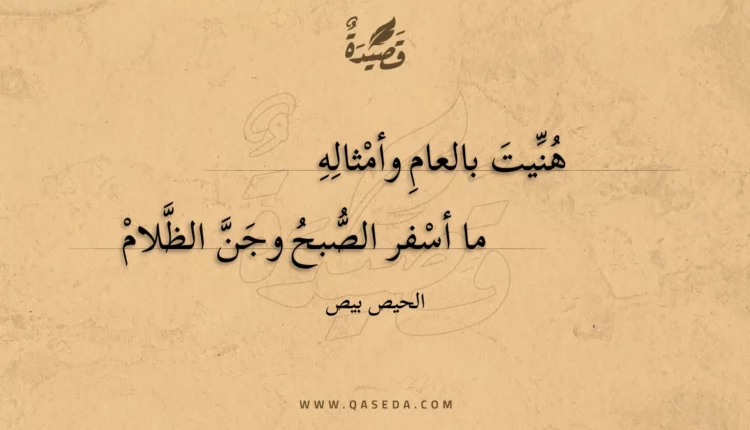 قَصِيدَةٌ
هُنِّيتَ بالعامِ وأمْثالِهِ
ما أسْفر الصُّبحُ وجَنَّ الظَّلامْ
الحيص بيص
WWW.QASEDA.COM